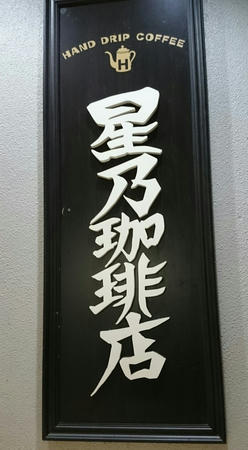 HAND DRIP COFFEE
H
星乃珈琲店